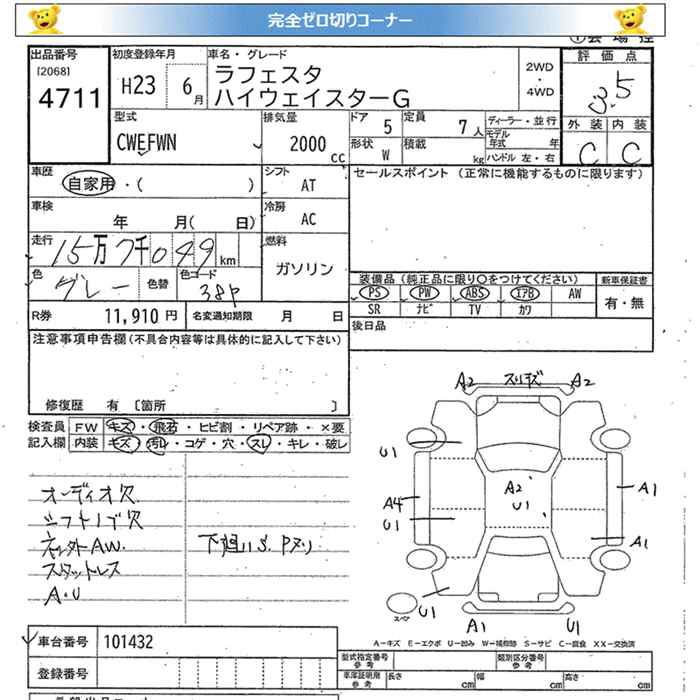 完全ゼロ切りコーナー
出品番号
[2068]
4711
初度登録年月
H23
6月
車名・グレード
ラフェスタ
ハイウェイスターG
2WD
・
4WD
評価点
3.5
外装
内装
C
C
型式
CWEFWN
排気量
2000
cc
ドア
5
定員
7人
形状
W
積載
kg
ディーラー・並行
モデル年式
年
ハンドル 左・右
車歴
自家用・( )
シフト
AT
セールスポイント (正常に機能するものに限ります)
車検
年 月( 日)
冷房
AC
走行
15万7千049
km
燃料
ガソリン
色
グレー
色替
色コード
38P
装備品 (純正品に限り〇をつけてください)
新車保証書
PS
PW
ABS
エアB
AW
有・無
SR
ナビ
TV
カワ
R券
11,910円
名変通知期限
月 日
後日品
注意事項申告欄(不具合内容等は具体的に記入して下さい)
修復歴 有 〔箇所 〕
検査員
記入欄
FW
キズ・飛石・ヒビ割・リペア跡・×要
内装
キズ・汚レ・コゲ・穴・スレ・キレ・破レ
オーディオ欠
シフトノブ欠
社外AW.
スタットレス
A・U
下廻りS.Pヌリ
A2
スリキズ
A2
U1
A4
U1
A2
U1
A1
A1
スペア
U1
A1
U1
A-キズ E-エクボ U-凹み W-補修跡 S-サビ C-腐食 XX-交換済
車台番号
101432
登録番号
型式指定番号
参考
類別区分番号
参考
車庫証明用
参考
長さ
cm
幅
cm
高さ
cm